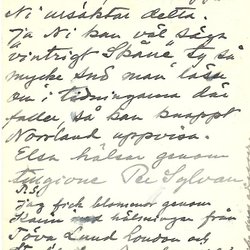 Ni ursäktar detta.
Ja Ni kan väl säga
"vintrigt Skåne" ty så
mycke snö man läser
om i tidningarna där
faller, så kan knappt
Norrland uppvisa.
Elsa hälsar genom
Per Sylvan
P.S.
Jag fick blommor genom
Karin med hälsningar från
Töva Lund London och